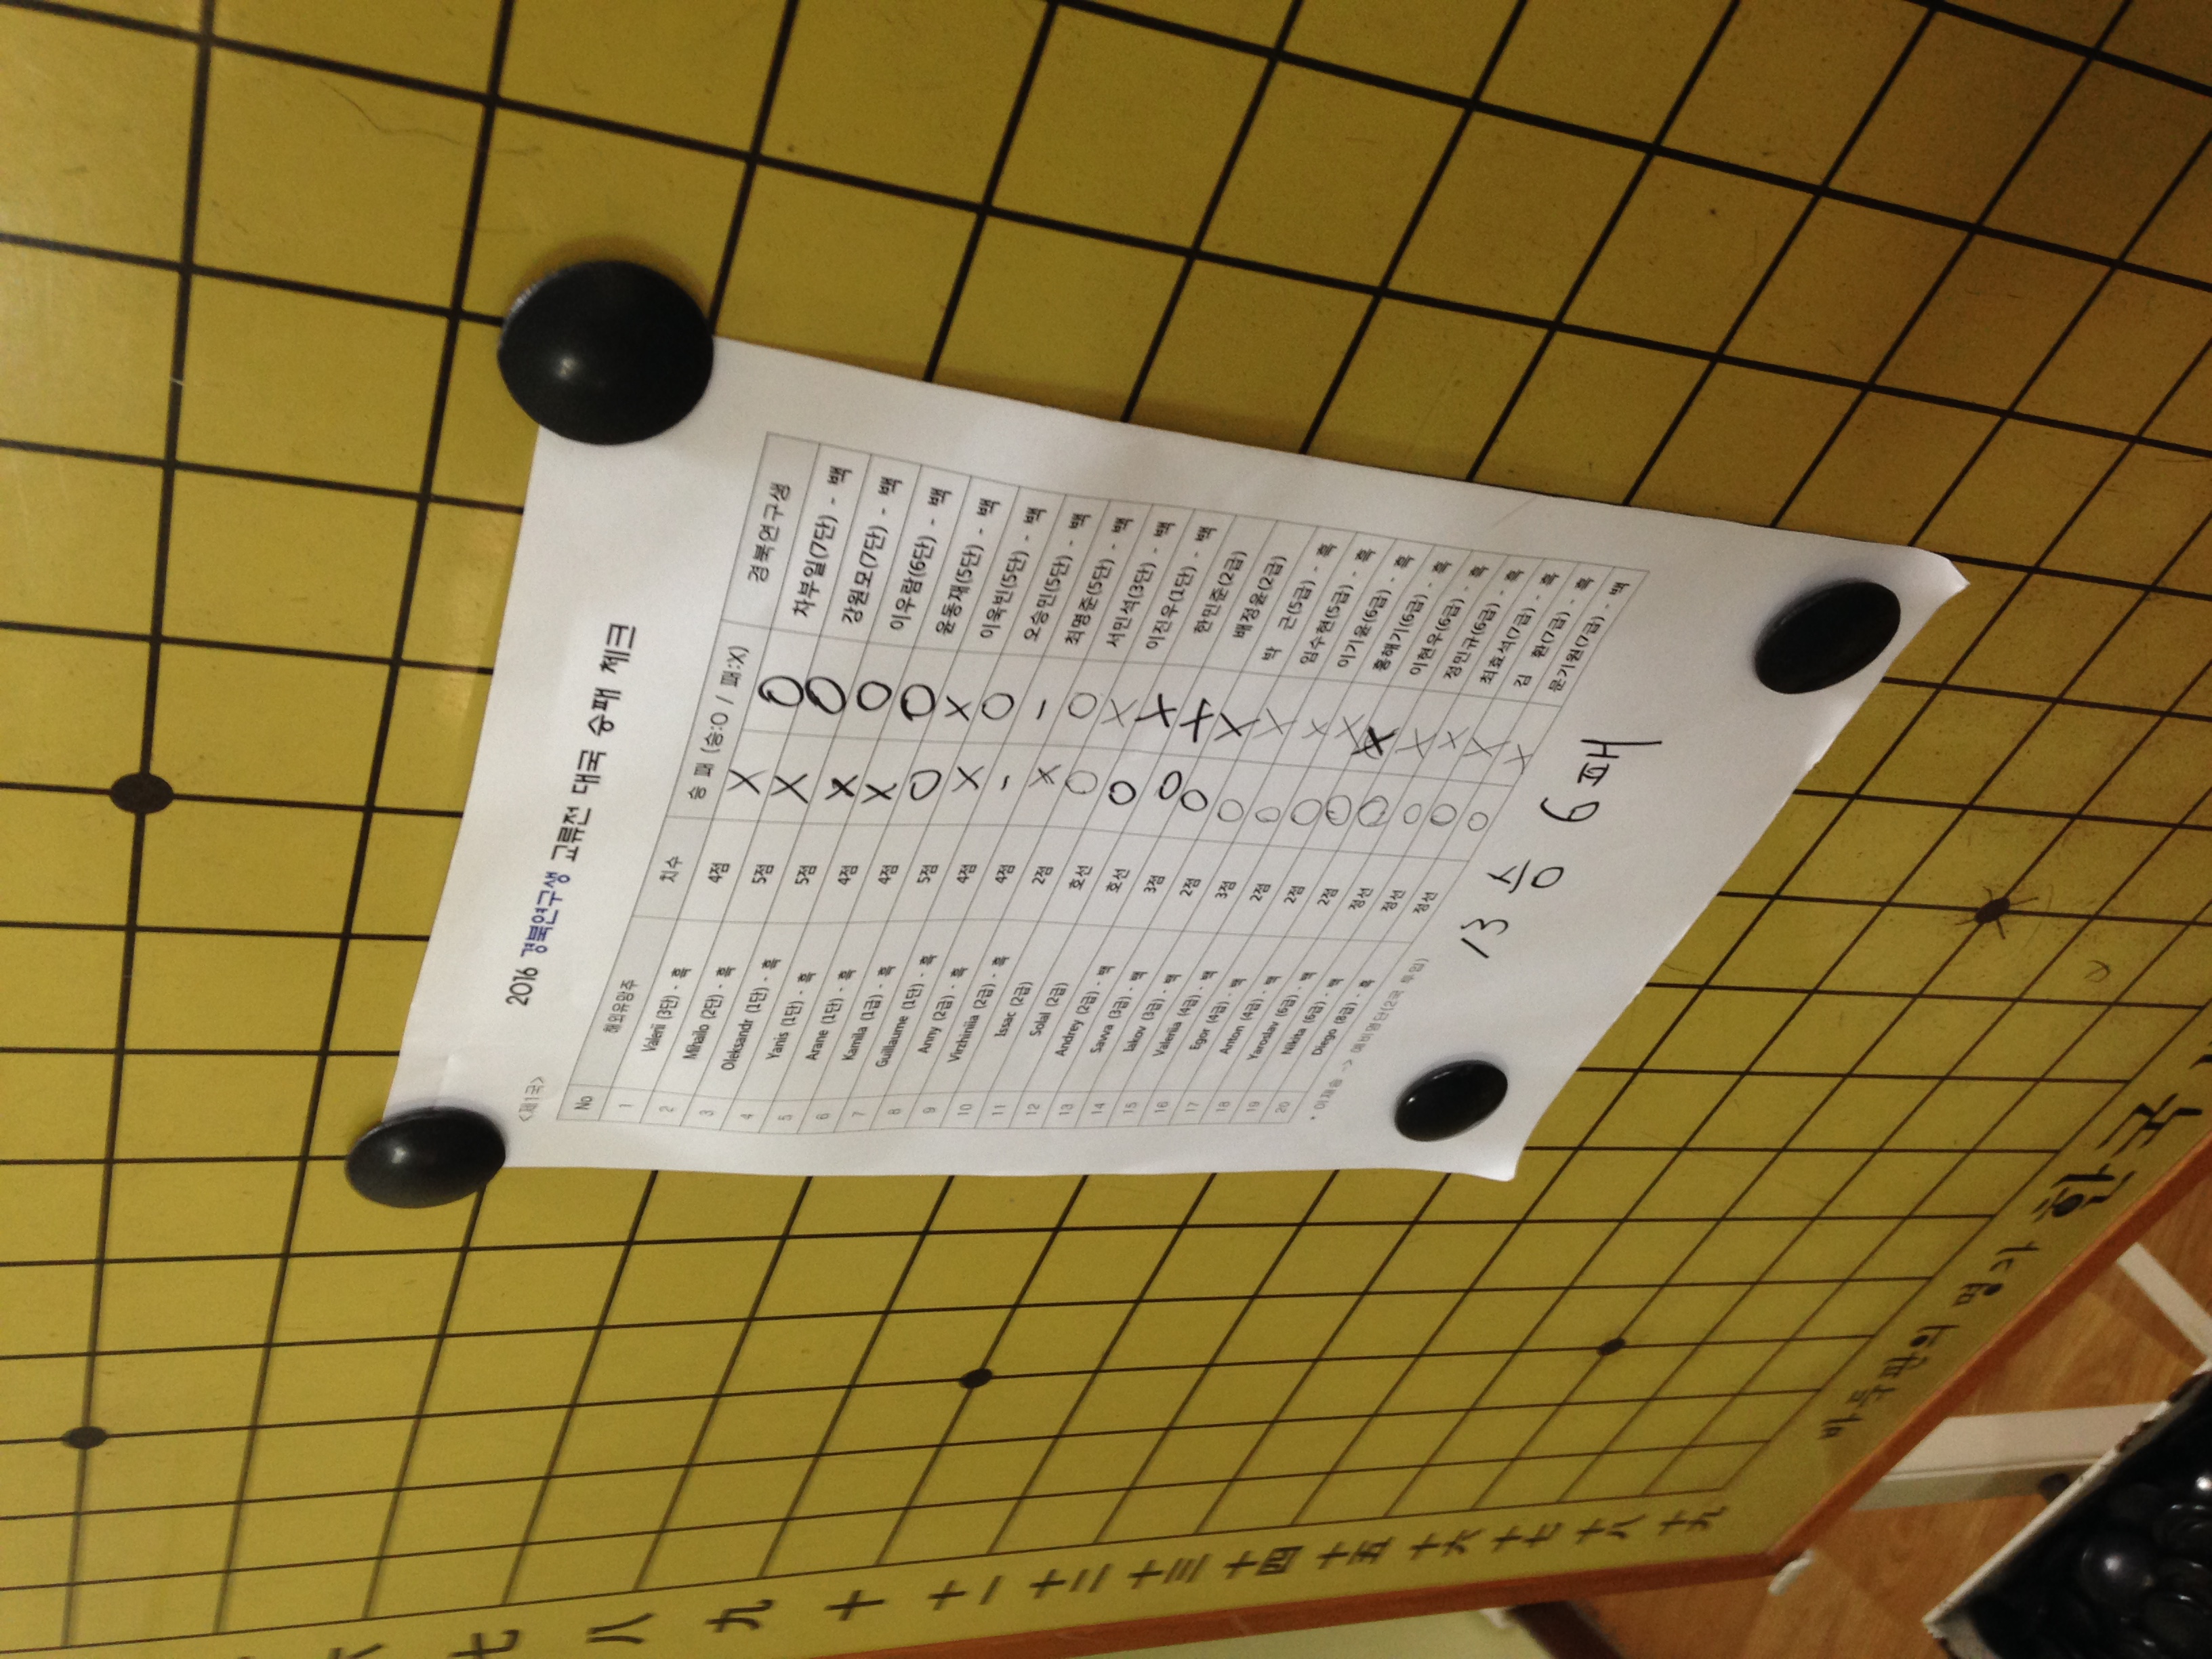 2016 경북연구생 교류전 대국 승패 체크
<제1국>
No 해외유망주 치수 승 패 (승:O / 패:X) 경북연구생
1 Valerii (3단) - 흑 4점 X O 차부일(7단) - 백
2 Mihailo (2단) - 흑 5점 X O 강원모(7단) - 백
3 Oleksandr (1단) - 흑 5점 X O 이우람(6단) - 백
4 Yanis (1단) - 흑 4점 X O 윤동재(5단) - 백
5 Arane (1단) - 흑 4점 O X 이욱빈(5단) - 백
6 Kamila (1급) - 흑 5점 X O 오승민(5단) - 백
7 Guillaume (1단) - 흑 4점 - - 최명준(5단) - 백
8 Anny (2급) - 흑 4점 X O 서민석(3단) - 백
9 Virzhiniia (2급) - 흑 2점 O X 이진우(1단) - 백
10 Issac (2급) 호선 O X 한민준(2급)
11 Solal (2급) 호선 O X 배정윤(2급)
12 Andrey (2급) - 백 3점 O X 박 근(5급) - 흑
13 Savva (3급) - 백 2점 O X 임수현(5급) - 흑
14 Iakov (3급) - 백 3점 O X 이기윤(6급) - 흑
15 Valeriia (4급) - 백 2점 O X 홍해기(6급) - 흑
16 Egor (4급) - 백 2점 O X 이현우(6급) - 흑
17 Anton (4급) - 백 2점 O X 정민규(6급) - 흑
18 Yaroslav (6급) - 백 정선 O X 최효석(7급) - 흑
19 Nikita (6급) - 백 정선 O X 김 환(7급) - 흑
20 Diego (8급) - 흑 정선 O X 문기원(7급) - 백
13 승 6 패
七 八 九 十 十一 十二 十三 十四 十五 十六 十七 十八 十九